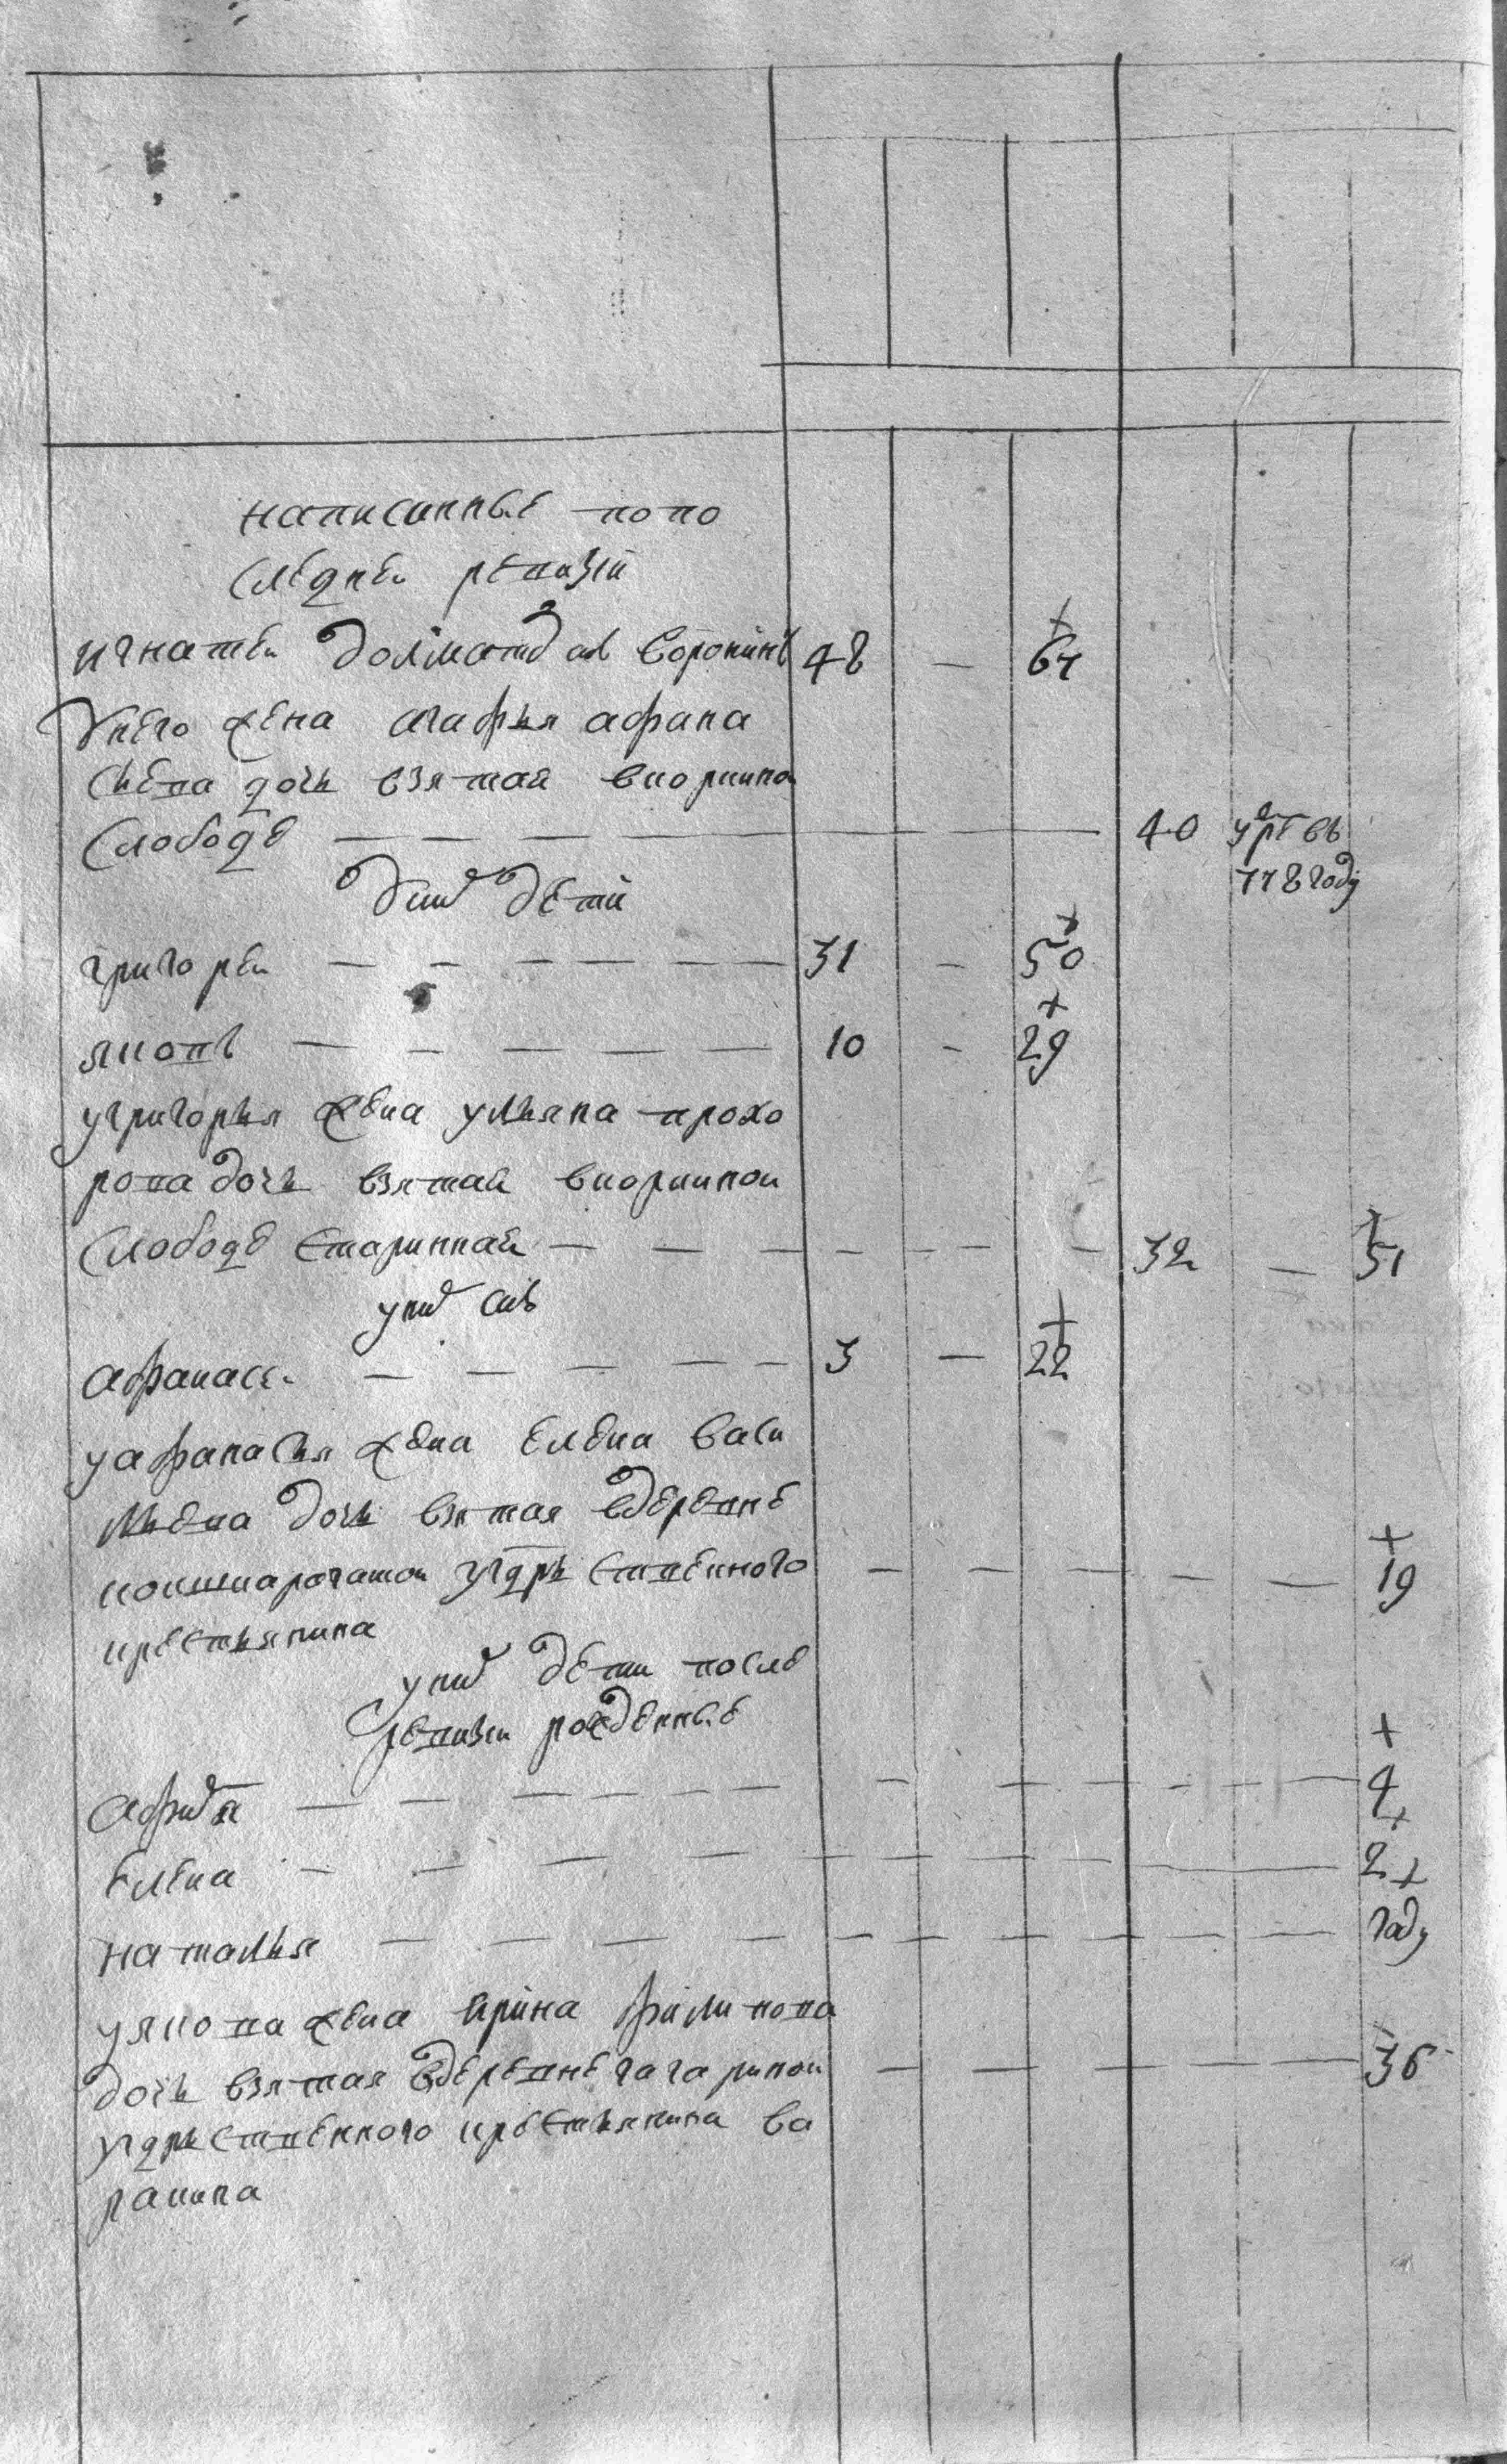 написанные по по
следнеи ревизіи
игнатеи долматов снъ воронинъ 48 — 67
у него жена агафья афана
сьева дочь взятая вкоркинои
слободе — — — — 40 умре въ
778 году
у них дети
григореи — — — — — — 31 — 50
яковъ — — — — — 10 — 29
у григорья жена ульяна прохо
рова дочь взятая вкоркинои
слободе старинная — — — — — — — 32 — 51
у них снъ
афанасеи — — — — — 3 — 22
у афанасья жена елена васи
льева дочь взятая вдеревне
у гдрственного — — — — — 19
крестьянина
у них дети после
ревизии рожденные
— — — — — — — — — — — 4
елена — — — — — — — — — 2
наталья — — — — — — — — — — году
у якова жена ирина филипова
дочь взятая вдеревне гагариной — — — — 36
у гдрственного крестьянина ва